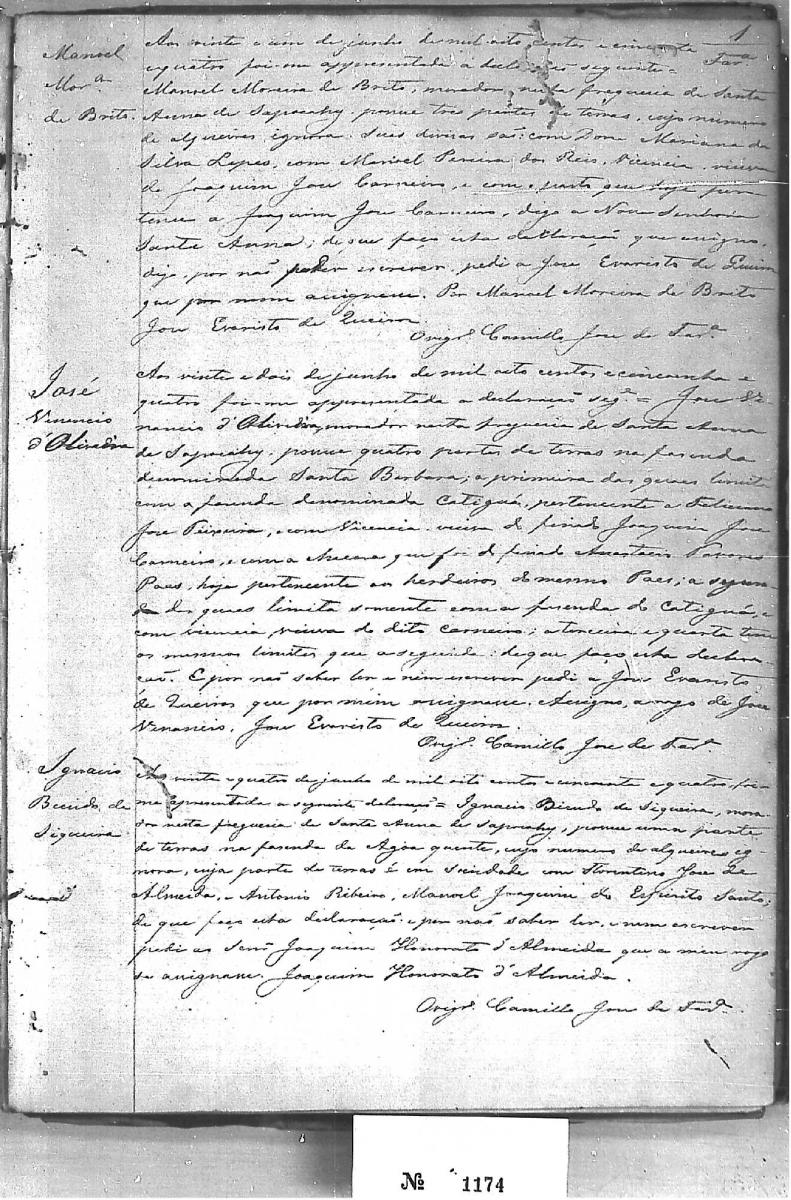 1
Far.ª
Manoel
Mor.ª
de Brito.
Aos vinte e um de junho de mil oito centos e cincoenta
e quatro foi-me appresentada a declaração seguinte =
Manoel Moreira de Brito, morador nesta freguesia de Santa
Anna de Sapucahy, possue tres partes de terras, cujo numero
de alqueires ignora. Suas divisas saõ: com Dona Mariana da
Silva Lopes, com Manoel Pereira dos Reis, Vicencia viuva
de Joaquim Jose Carneiro, e com a parte que hoje pern
tence a Joaquim Jose Carneiro, digo a Nossa Senhora
Santa Anna; de que faço esta declaração que assigno,
digo, por naõ poder escrever, pedi a Jose Evaristo de Queiros
que por mim assignasse. Por Manoel Moreira de Brito
Jose Evaristo de Queiros
O vigr.º Camillo Jose de Far.ª
José
Venancio
d'Oliveira
Aos vinte e dois de junho de mil oito centos e cincoenta e
quatro foi-me appresentada a declaração seg.e = Jose Ve-
nancio d'Oliveira, morador nesta freguesia de Santa Anna
de Sapucahy, possue quatro partes de terras na fasenda
denominada Santa Barbara; a primeira das quaes limita
com a fasenda denominada Catiguá, pertencente a Feliciano
Jose Teixeira, e com Vicencia viuva do finado Joaquim Jose
Carneiro, e com a chacara que foi do finado Anastacio Tavares
Paes, hoje pertencente aos herdeiros do mesmo Paes; a segun-
da das quaes limita somente com a fasenda do Catiguá, e
com vicencia, viuva do dito Carneiro; a terceira e quarta tem
os mesmos limites que a segunda: de que faço esta declara-
çaõ. E por naõ saber ler e nem escrever pedi a Jose Evaristo
de Queiros que por mim assignasse. Assigno, a rogo de Jose
Venancio, Jose Evaristo de Queiros.
O vigr.º Camillo Jose de Far.ª
Ignacio
Bicudo de
Siqueira.
Aos vinte e quatro de junho de mil oito centos e cincoenta e quatro, foi-
me apresentada a seguinte declaração = Ignacio Bicudo de Siqueira, mora-
dor nesta freguesia de Santa Anna de Sapucahy, possue uma parte
de terras na fasenda da Agoa quente, cujo numero de alqueires ig-
nora, cuja parte de terras é em sociedade com Florentino Jose de
Almeida, e Antonio Ribeiro, Manoel Joaquim do Espirito Santo;
de que faço esta declaração. e por naõ saber ler, e nem escrever
pedi ao Senr. Joaquim Honorato d'Almeida que a meu rogo
se assignasse. Joaquim Honorato d'Almeida.
O vigr.º Camillo Jose de Far.ª
№ 1174